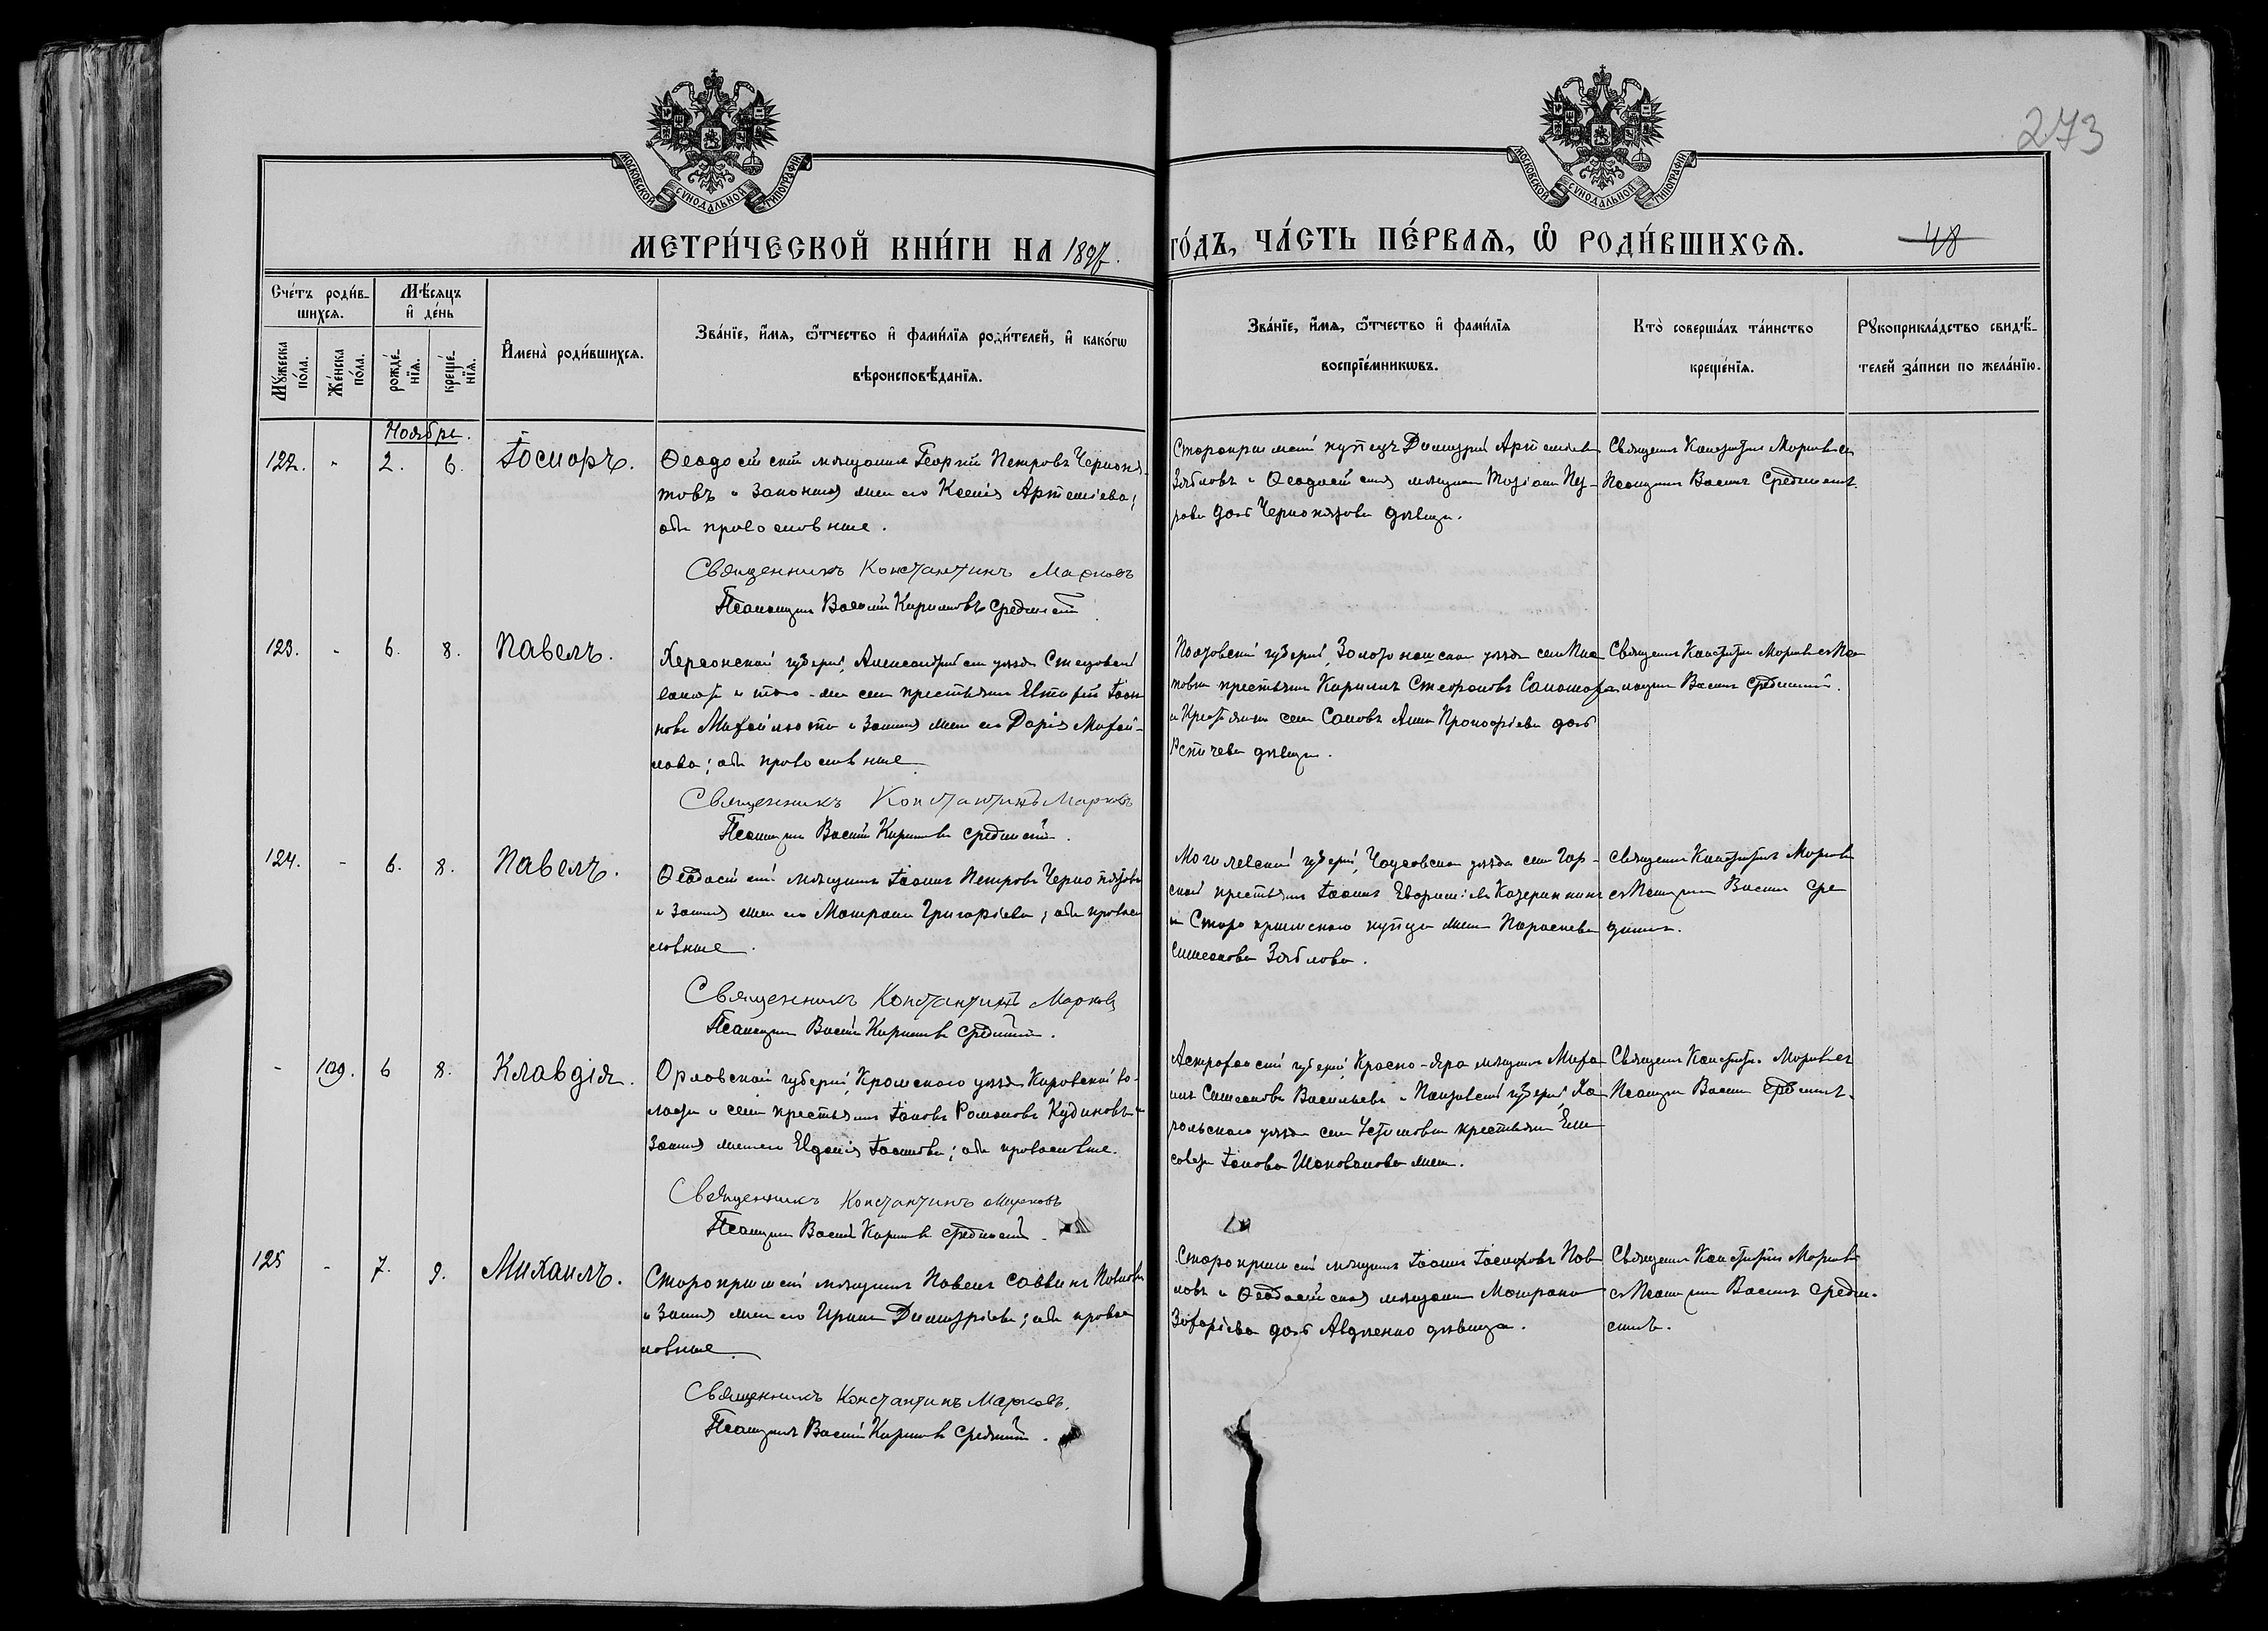 МОСКОВСКОЙ СѴНОДАЛЬНОЙ ТИПОГРАФІИ
МОСКОВСКОЙ СѴНОДАЛЬНОЙ ТИПОГРАФІИ
273
МЕТРИ́ЧЕСКОЙ КНИ́ГИ НА 1897.
ГО́ДЪ, ЧА́СТЬ ПЕ́РВАЯ, Ѡ҆ РОДИ́ВШИХСЯ.
48
Сче́тъ роди́в-
шихся.
Мѣ́сяцъ
и҆ де́нь
Мꙋ́жеска
по́ла.
Же́нска
по́ла.
рожде́-
нїя.
креще́-
нїя.
И҆мена̀ роди́вшихся.
Зва́нїе, и҆́мя, ѻ҆́тчество и҆ фами́лїя роди́телей, и҆ како́гѡ
вѣроисповѣ́данїя.
Зва́нїе, и҆́мя, ѻ҆́тчество и҆ фами́лїя
воспрїе́мникѡвъ.
Кто̀ соверша́лъ та́инство
креще́нїя.
Рꙋкоприкла́дство свидѣ́-
телей за́писи по жела́нїю.
Ноябрь.
122. - 2. 6. Іосифъ.
Ѳеодосійскій мѣщанинъ Георгій Петровъ Чернопя-
товъ и законная жена его Ксенія Артемьева;
оба православные.
Священникъ Константинъ Марковъ
Псаломщикъ Василій Кириловъ Срединскій
Старокрымскій купецъ Димитрій Артемьевъ
Зябловъ и Ѳеодосійская мѣщанка Татіана Пет-
рова дочь Чернопятова дѣвица.
Священникъ Константинъ Марковъ съ
Псаломщикомъ Василіемъ Срединскимъ.
123. - 6. 8. Павелъ.
Херсонской губерніи, Александрійскаго уѣзда
волости и того-же села крестьянинъ Евтихій Іоан-
новъ и законная жена его Дарія Михай-
лова; оба православные
Священникъ Константинъ Марковъ
Псаломщикъ Василій Кириловъ Срединскій.
Полтавской губерніи, Золотоношскаго уѣзда села
крестьянинъ Кириллъ Стефановъ
и крестьянка села Анна Прокофіева дочь
дѣвица.
Священникъ Константинъ Марковъ съ Пса-
ломщикомъ Василіемъ Срединскимъ.
124. - 6. 8. Павелъ.
Ѳеодосійскій мѣщанинъ Іоаннъ Петровъ Чернопятовъ
и законная жена его Матрона Григоріева; оба правос-
лавные.
Священникъ Константинъ Марковъ
Псаломщикъ Василій Кириловъ Срединскій.
Могилевской губерніи, Чаусовскаго уѣзда села Гор-
ской крестьянинъ Іоаннъ Евфиміевъ
и Старокрымскаго купца жена Параскева
Симеонова Зяблова.
Священникъ Константинъ Марковъ
съ Псаломщикомъ Василіемъ Сре-
динскимъ.
- 109. 6 8. Клавдія.
Орловской губерніи, Кромскаго уѣзда Кировской во-
лости и села крестьянинъ Іаковъ Романовъ Кудиновъ и
законная жена его Евдокія Іоаннова; оба православные.
Священникъ Константинъ Марковъ
Псаломщикъ Василій Кириловъ Срединскій.
Астраханской губерніи, Красно-Яра мѣщанинъ Миха-
илъ Симеоновъ Васильевъ и Полтавской губерніи, Хо-
рольскаго уѣзда села Устимовки крестьянина Ели-
савета Іакова Шаповалова жена.
Священникъ Константинъ Марковъ съ
Псаломщикомъ Василіемъ Срединскимъ.
125 - 7. 9. Михаилъ.
Старокрымскій мѣщанинъ Павелъ Саввинъ Павловъ
и законная жена его Ирина Димитріева; оба правос-
лавные
Священникъ Константинъ Марковъ.
Псаломщикъ Василій Кириловъ Срединскій.
Старокрымскій мѣщанинъ Іоаннъ Іосифовъ Пав-
ловъ и Ѳеодосійская мѣщанка Матрона
Захаріева дочь Авдѣенко дѣвица.
Священникъ Константинъ Марковъ
съ Псаломщикомъ Василіемъ Средин-
скимъ.